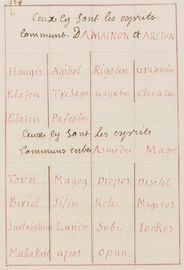 Ceux cy sont les esprits
communs. DAMAINON et ARITON
Haugis Agibol Rigolen Grasemin
Elafon Trisaga Gagalin Cleraca
Elaton Pafesla
Ceux cy sont les esprits
Communs entre Asmodee Magot
Toun Magog Diopos Disolel
Biriel Sifon Kele Magiros
Sartabakim Lunde Sobe Inokos
Mabakiel apot Opun